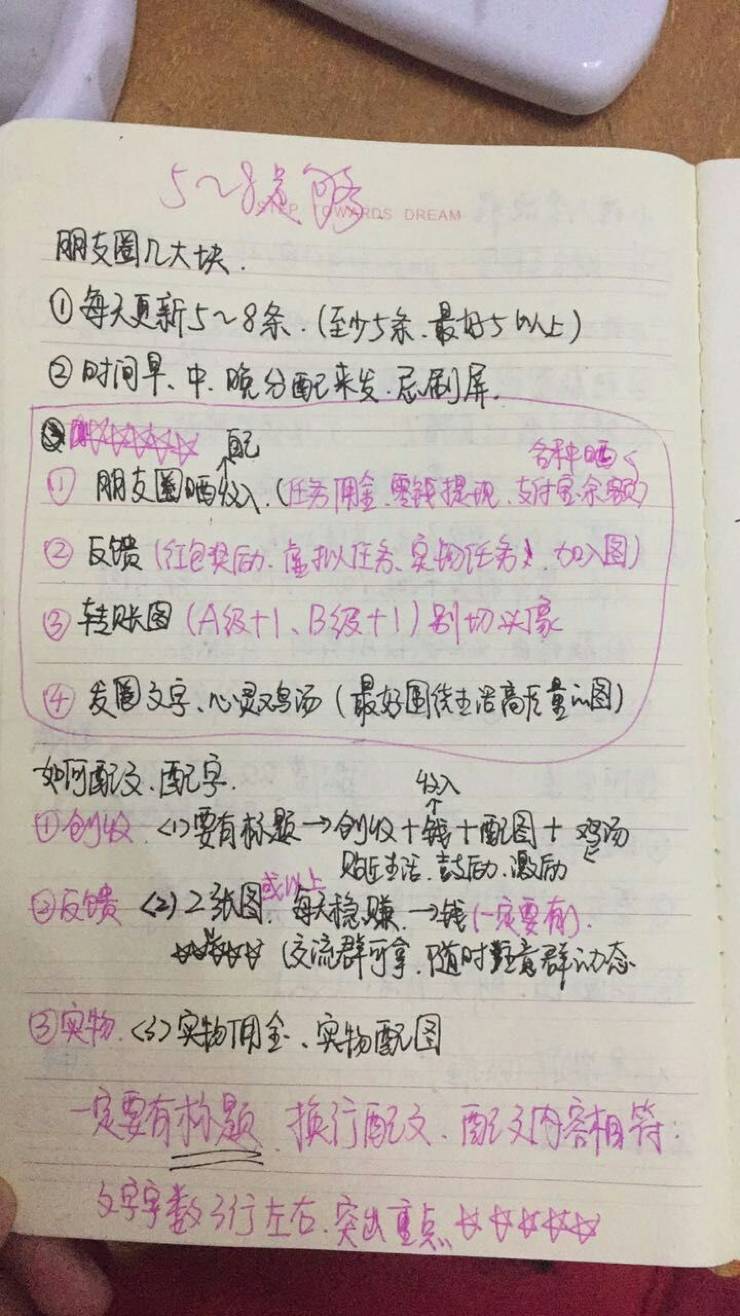 5~8条够
STEP TOWARDS DREAM
朋友圈几大块.
①每天更新5~8条.(至少5条.最好5以上)
②时间早、中、晚分配来发.忌刷屏.
☆☆☆☆☆ 配
各种晒
① 朋友圈晒收入.(任务佣金.零钱提现.支付宝余额)
② 反馈(红包奖励.虚拟任务、实物任务、加入图)
③ 转账图(A级+1、B级+1)别切头像
④ 发圈文字、心灵鸡汤(最好围绕生活高质量的图)
如何配文、配字.
收入
↑
①创收 <1>要有标题→创收+钱+配图+鸡汤
贴近生活.鼓励.激励
②反馈 <2>2张图或以上.每天稳赚.→钱(一定要有).
☆☆☆☆ (交流群可拿.随时注意群动态
③实物.<3>实物佣金、实物配图
一定要有标题.换行配文.配文内容相符.
文字字数3行左右.突出重点☆☆☆☆☆